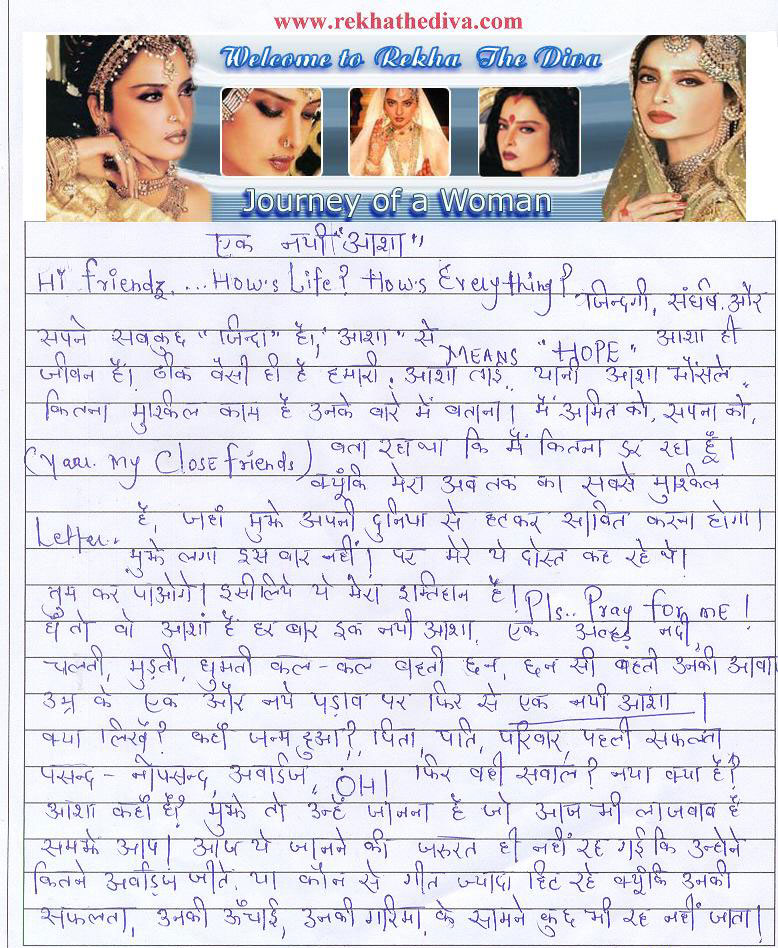 www.rekhathediva.com
Welcome to Rekha The Diva
Journey of a Woman
एक नयी "आशा"
Hi friendz,...How's Life? How's Everything?
जिन्दगी, संघर्ष और
सपने सबकुछ "जिन्दा" है। "आशा" से MEANS "HOPE" आशा ही
जीवन है। ठीक वैसी ही है हमारी. आशा ताई यानी आशा भौंसले
कितना मुश्किल काम है उनके बारे में बताना। मैं अमित को, सपना को,
(Yaar. My Close friends) बता रहा था कि मैं कितना डर रहा हूँ।
क्यूंकि मेरा अब तक का सबसे मुश्किल
Letter.. है, जहाँ मुझे अपनी दुनिया से हटकर साबित करना होगा।
मुझे लगा इस बार नहीं! पर मेरे ये दोस्त कह रहे थे।
तुम कर पाओगे। इसीलिये ये मेरा इम्तिहान है। Pls.. Pray for me!
हाँ तो वो आशा है हर बार इक नयी आशा, एक अल्हड़ नदी,
चलती, मुड़ती, घुमती कल-कल बहती छन, छन सी बहती उनकी आवा
उम्र के एक और नये पड़ाव पर फिर से एक नयी आशा।
क्या लिखूँ? कहाँ जन्म हुआ?, पिता, पति, परिवार, पहली सफलता
पसन्द - नापसन्द, अवार्डज, OH! फिर वही सवाल? नया क्या है?
आशा कहाँ है? मुझे तो उन्हें जानना है जो आज भी लाजवाब है
समझे आप। आज ये जानने की जरुरत ही नहीं रह गई कि उन्होने
कितने अर्वाड्ज जीते. या कौन से गीत ज्यादा हिट रहे क्यूंकि उनकी
सफलता, उनकी ऊँचाई, उनकी गरिमा, के सामने कुछ भी रह नहीं जाता।